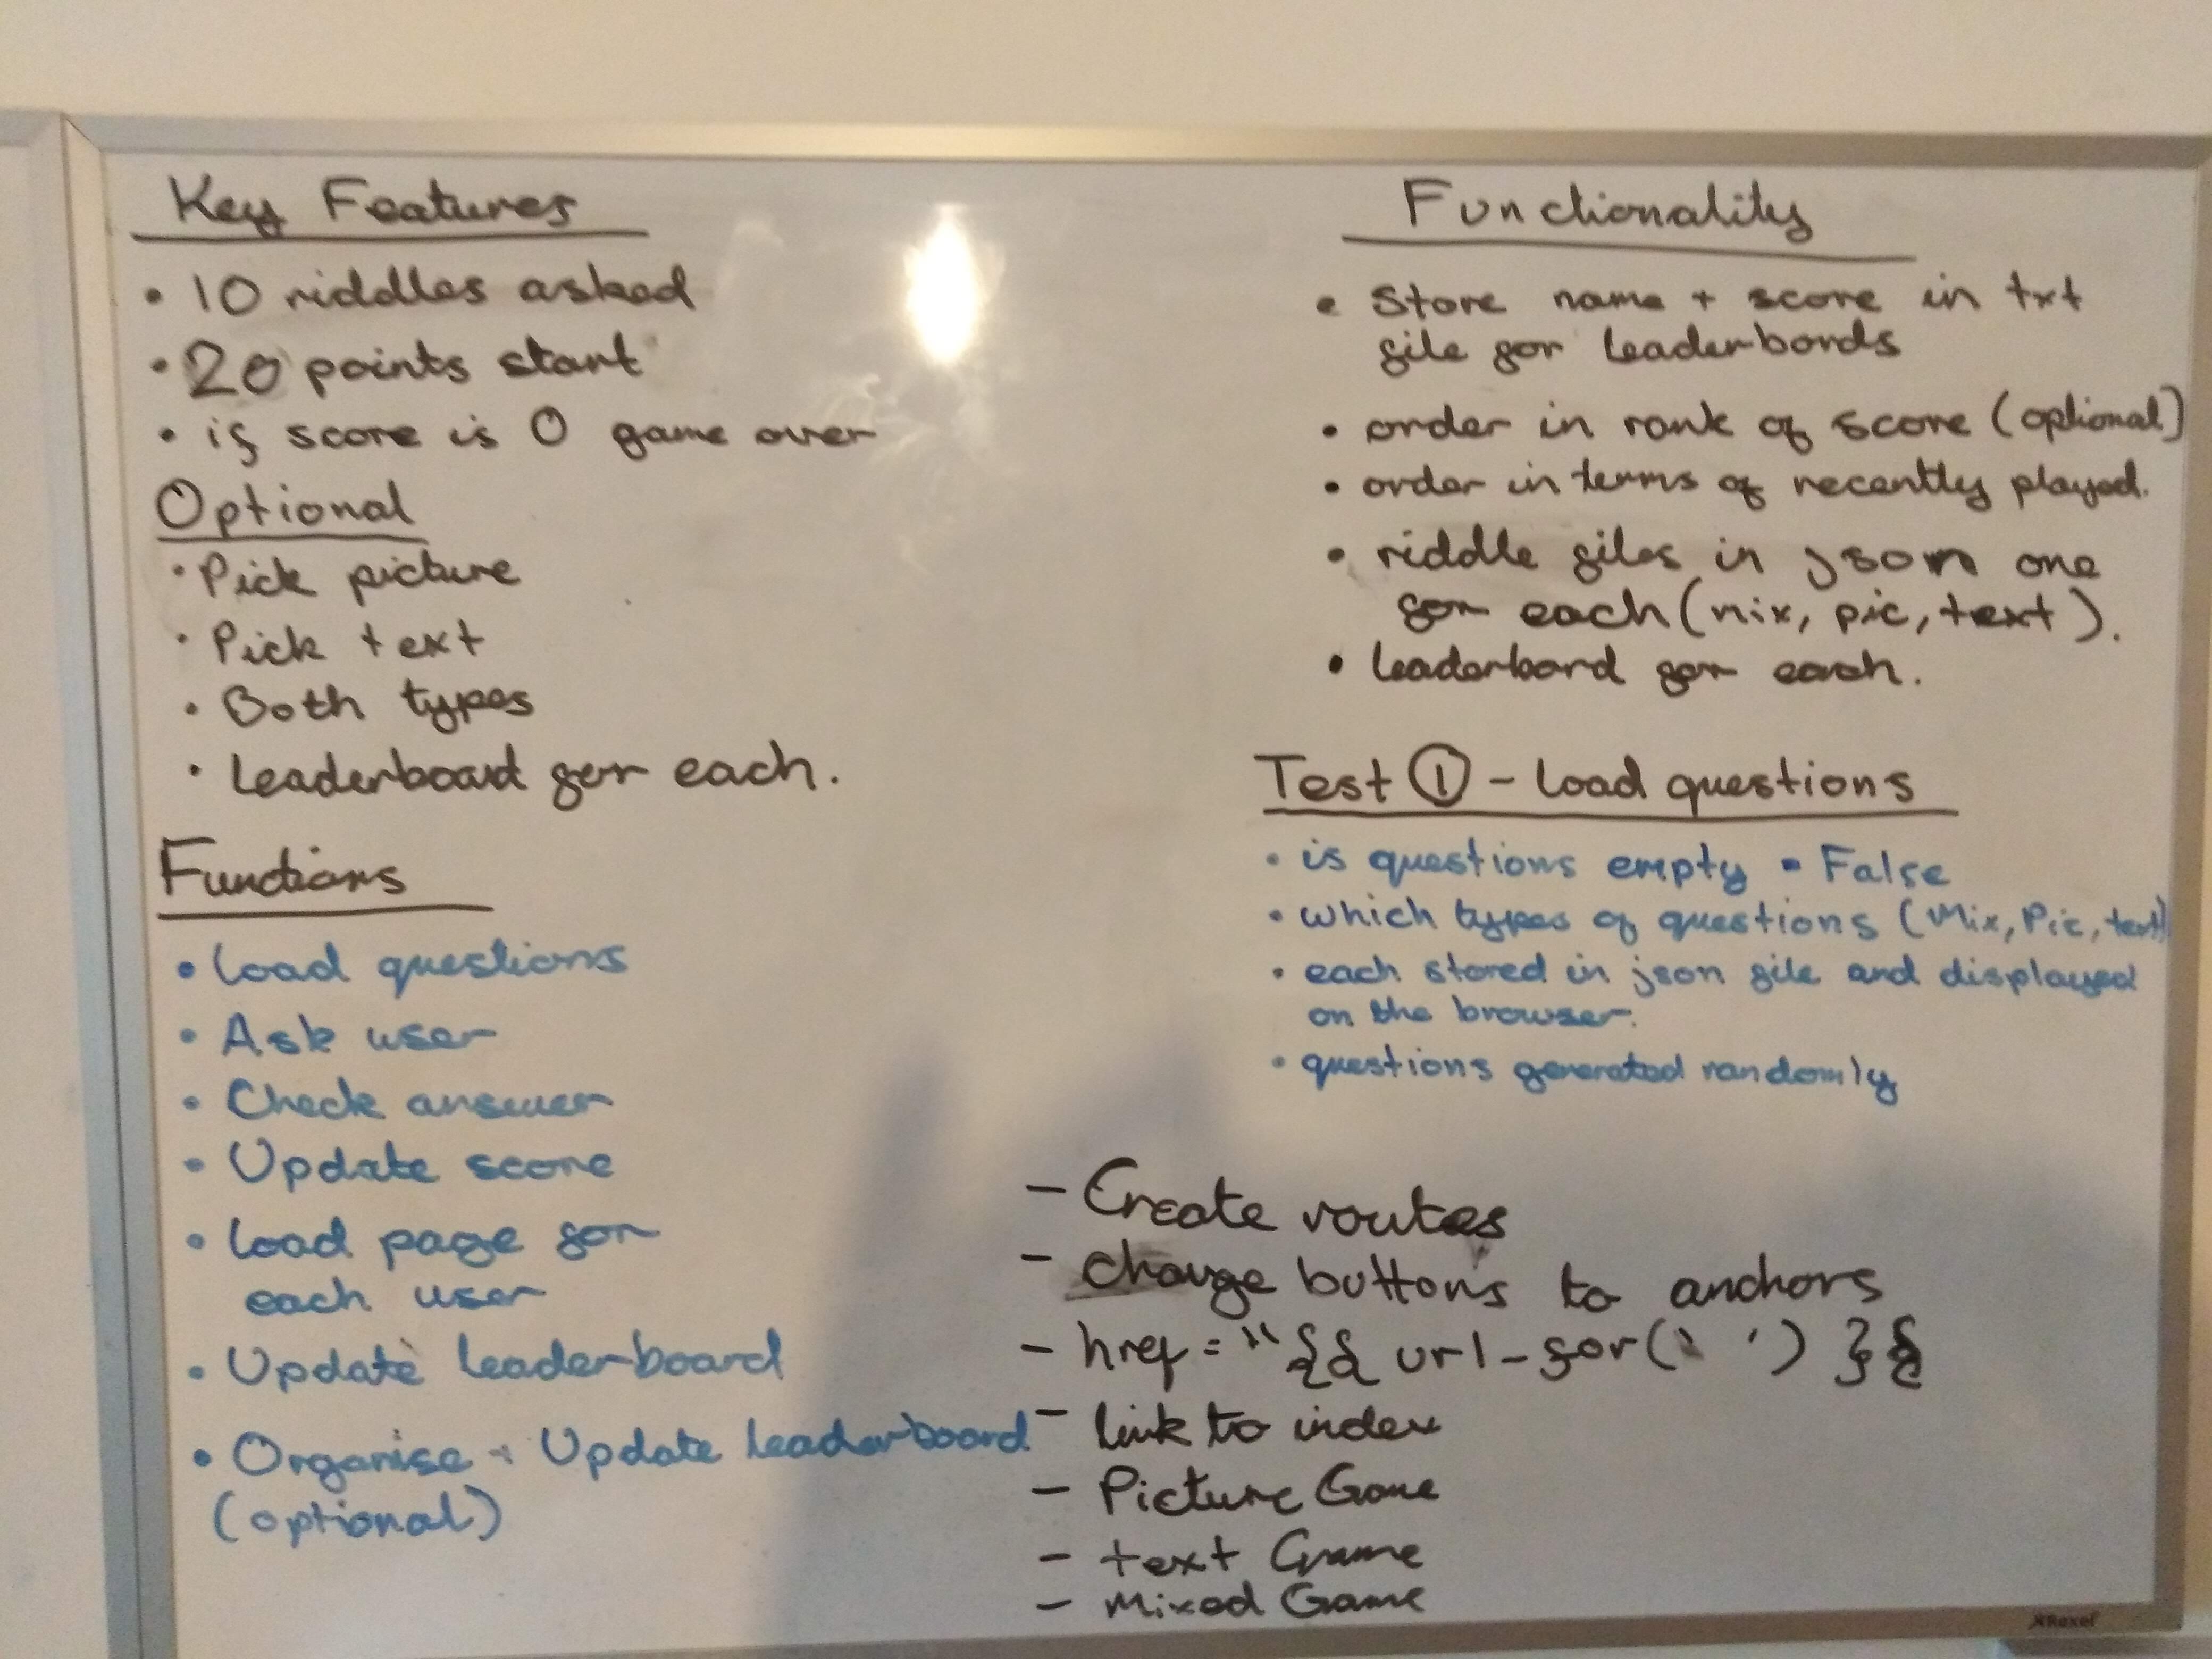 Key Features
• 10 riddles asked
• 20 points start
• if score is 0 game over
Optional
• Pick picture
• Pick text
• Both types
• Leaderboard for each.
Functions
• Load questions
• Ask user
• Check answer
• Update score
• Load page for
each user
• Update leaderboard
• Organise + Update leaderboard
(optional)
Functionality
• Store name + score in txt
file for leaderbords
• order in rank of score (optional)
• order in terms of recently played.
• riddle files in json one
for each (mix, pic, text).
• leaderbord for each.
Test ① - load questions
• is questions empty • False
• which types of questions (Mix, Pic, text)
• each stored in json file and displayed
on the browser.
• questions generated randomly
- Create routes
- change buttons to anchors
- href = "{{ url_for(' ') }}
- link to index
- Picture Game
- text Game
- Mixed Game
Rexel